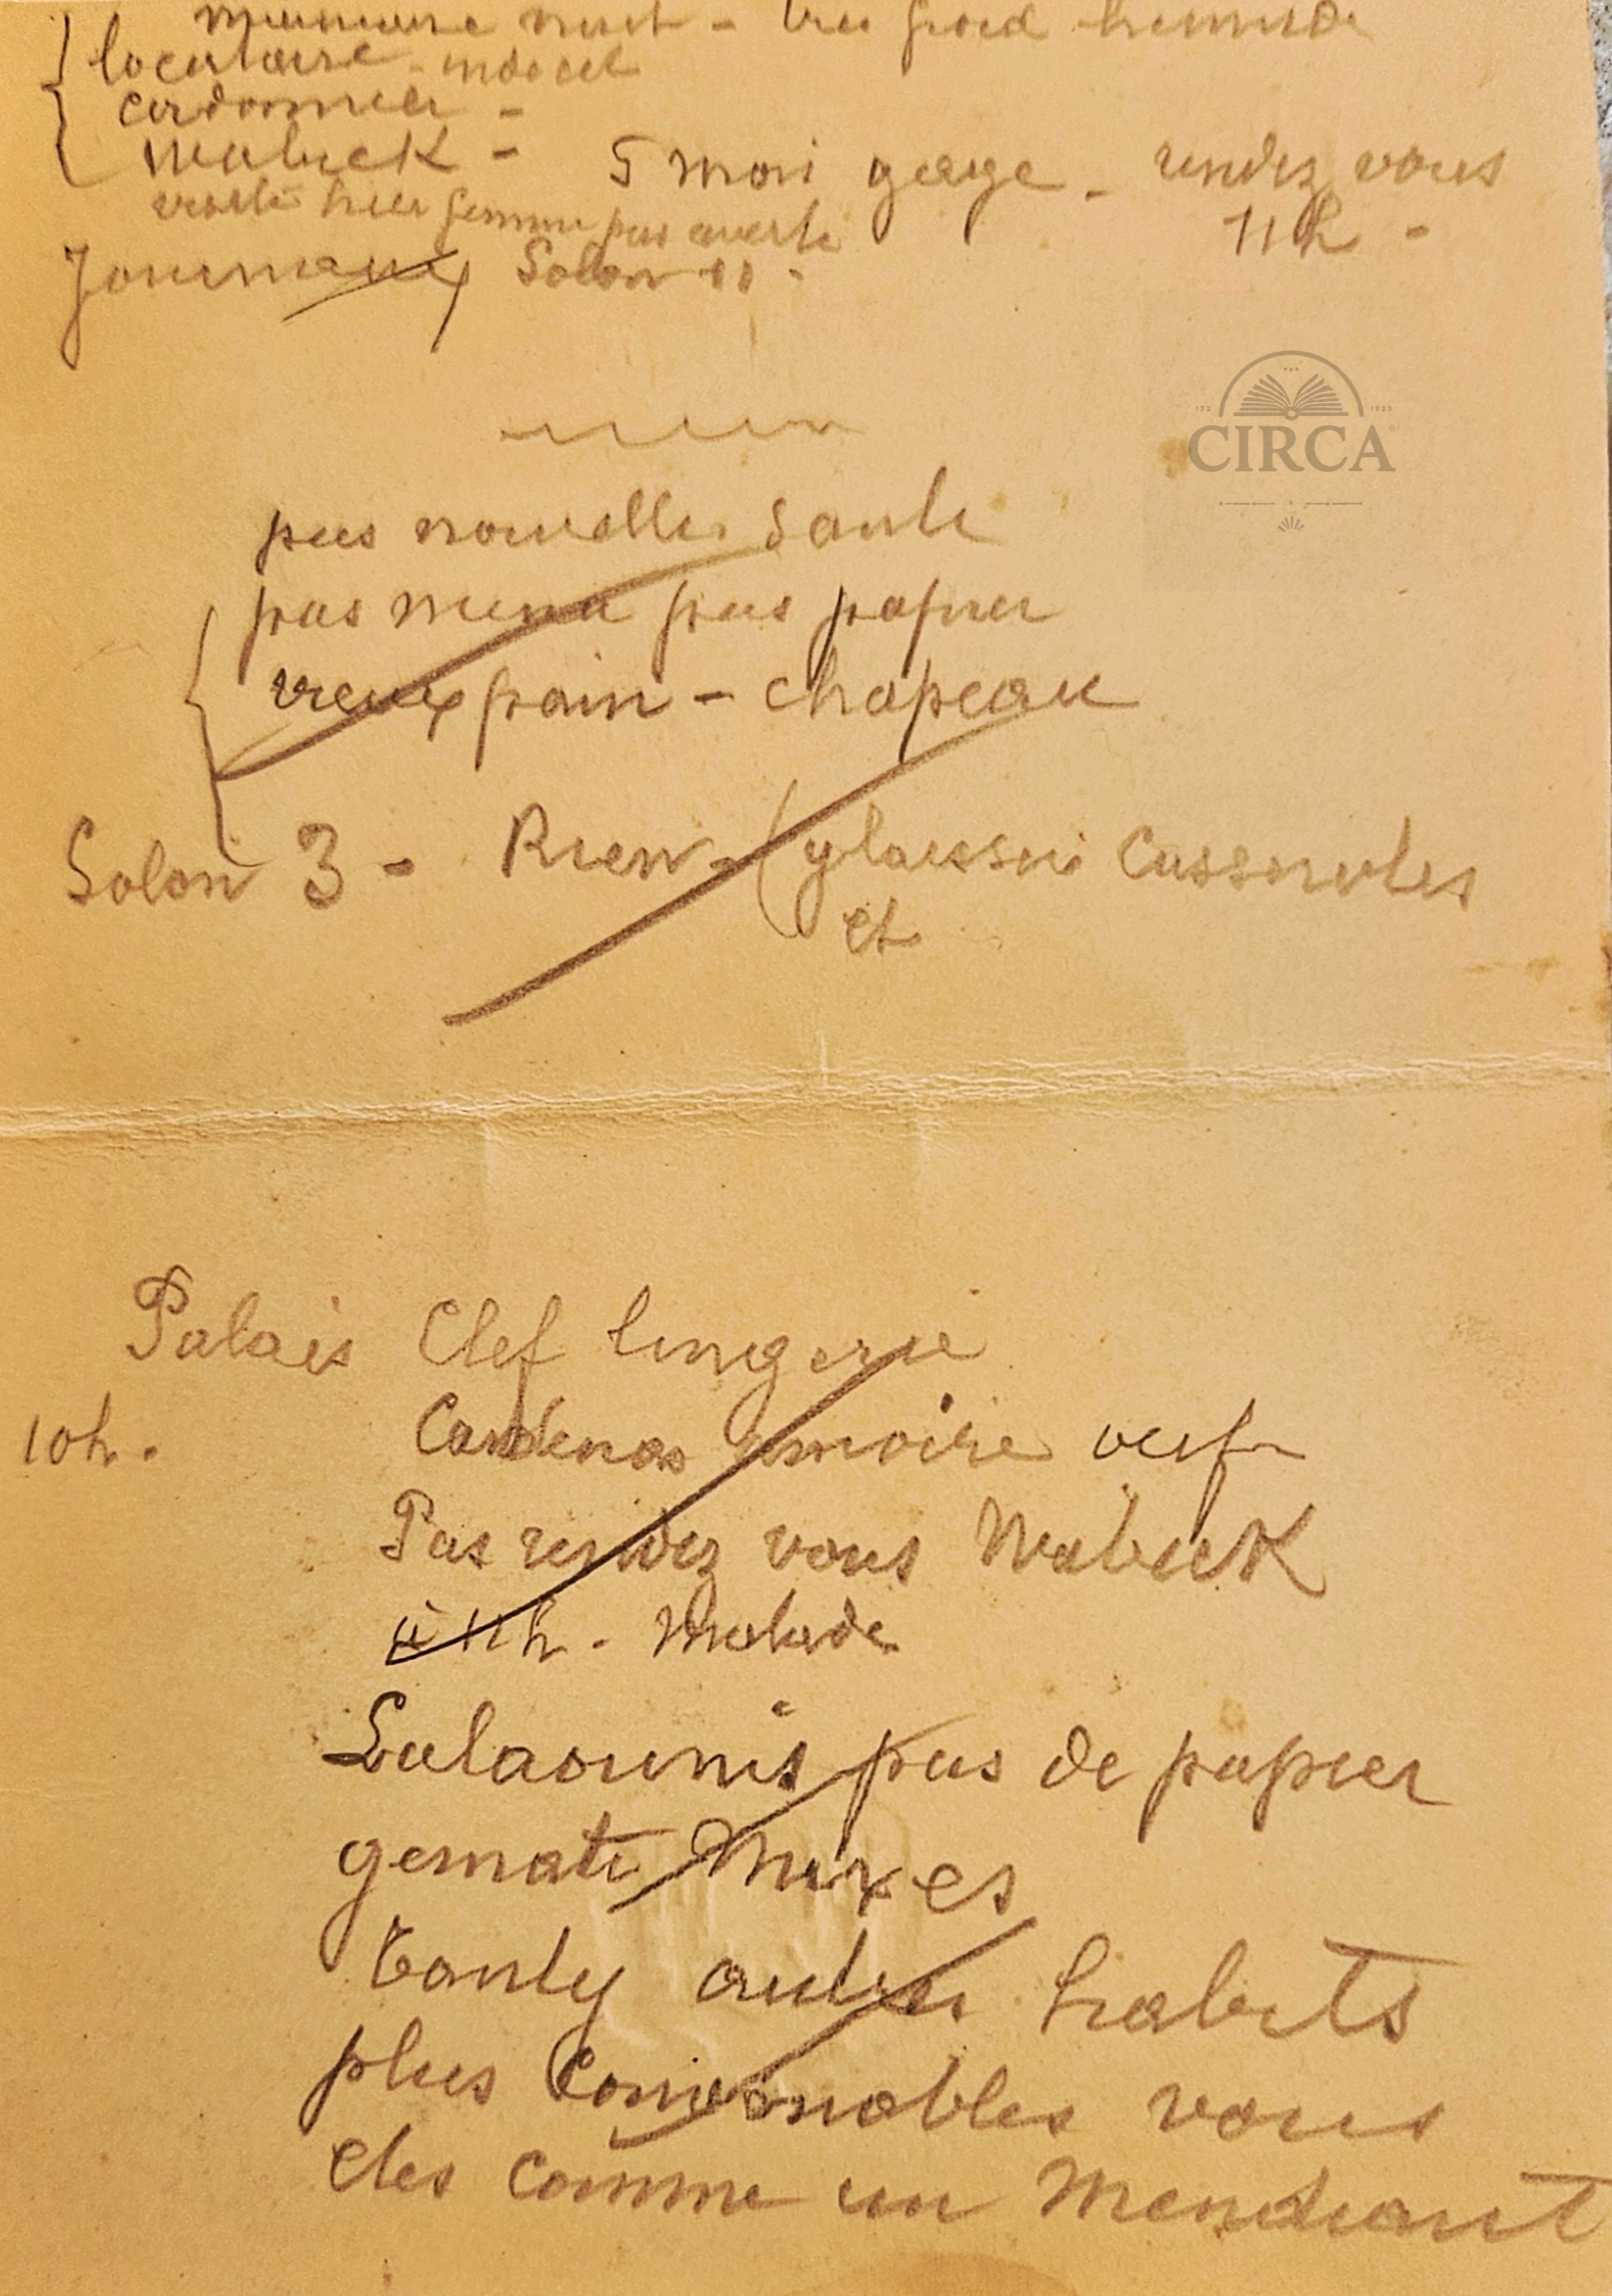 nuit - très froid humide
locataire - indécel
cordonnier -
Mabuck - 5 moi gage - rendez vous
visite hier femme pas averti 11h -
Journaux Solon 11 -
pas nouvelles santé
pas menu pas papier
vieux pain - chapeau
Solon 3 - Rien - (glaissui Casseroles
et
Palais Clef lingerie
10h. Candenas moire oeuf
Pas rendez vous Mabuck
à 11h. Malade
Lalaounis pas de papier
gemate Mixes
Tanly autres habits
plus convenables vous
etes comme un Mendiant
CIRCA